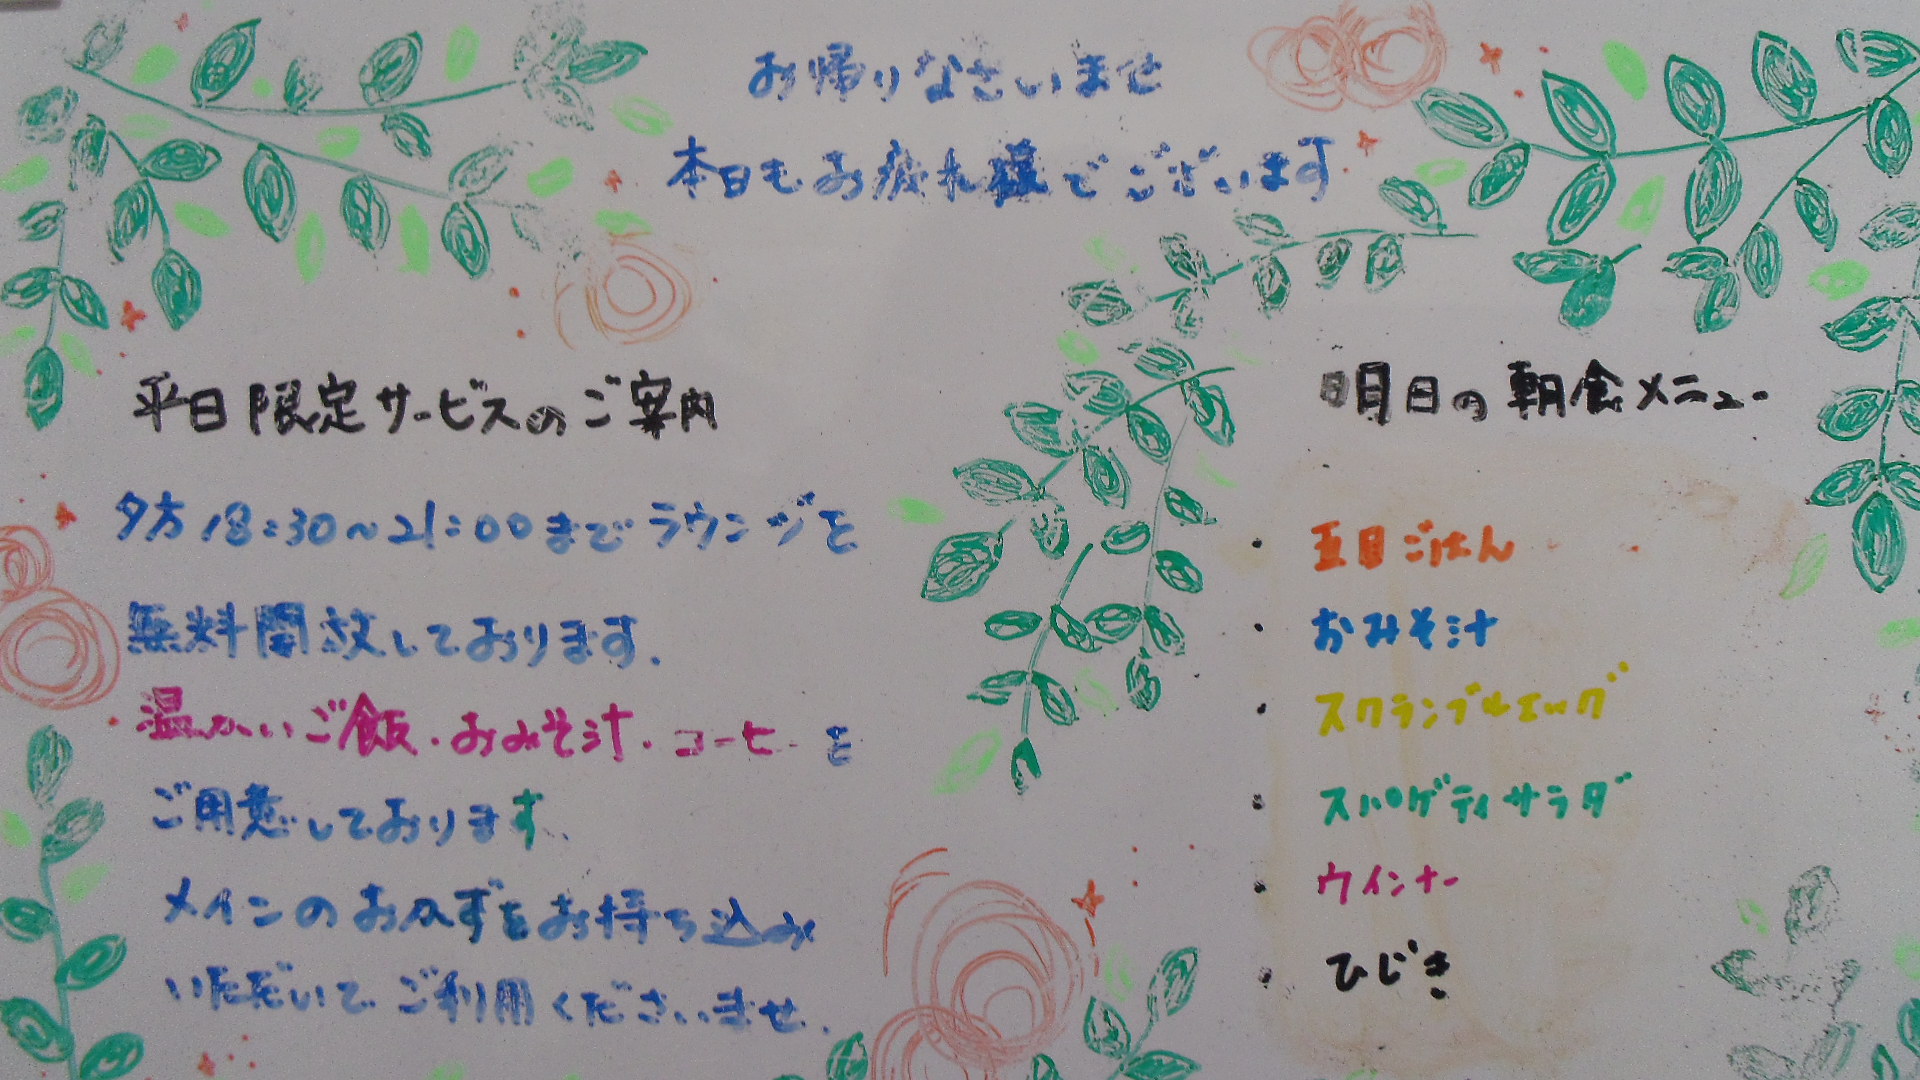 お帰りなさいませ
本日もお疲れ様でございます
平日限定サービスのご案内
夕方18:30〜21:00までラウンジを
無料開放しております.
温かいご飯・おみそ汁・コーヒーを
ご用意しております.
メインのおかずをお持ち込み
いただいてご利用くださいませ.
明日の朝食メニュー
・五目ごはん
・おみそ汁
・スクランブルエッグ
・スパゲティサラダ
・ウインナー
・ひじき